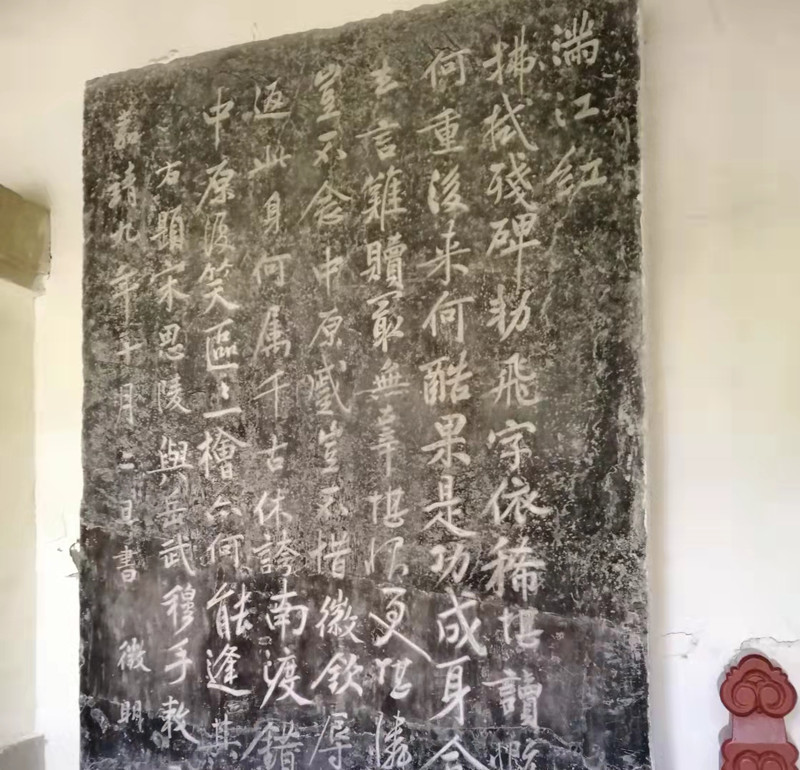 滿江紅
拂拭殘碑勑飛字依稀堪讀慨
何重後来何酷果是功成身合
去言難贖最無辜堪恨更堪憐
豈不念中原蹙豈不惜徽欽辱
返此身何属千古休誇南渡錯
中原復笑區〻一檜亦何能逢其
右題宋思陵與岳武穆手敕
嘉靖九年十月二日書 徵明